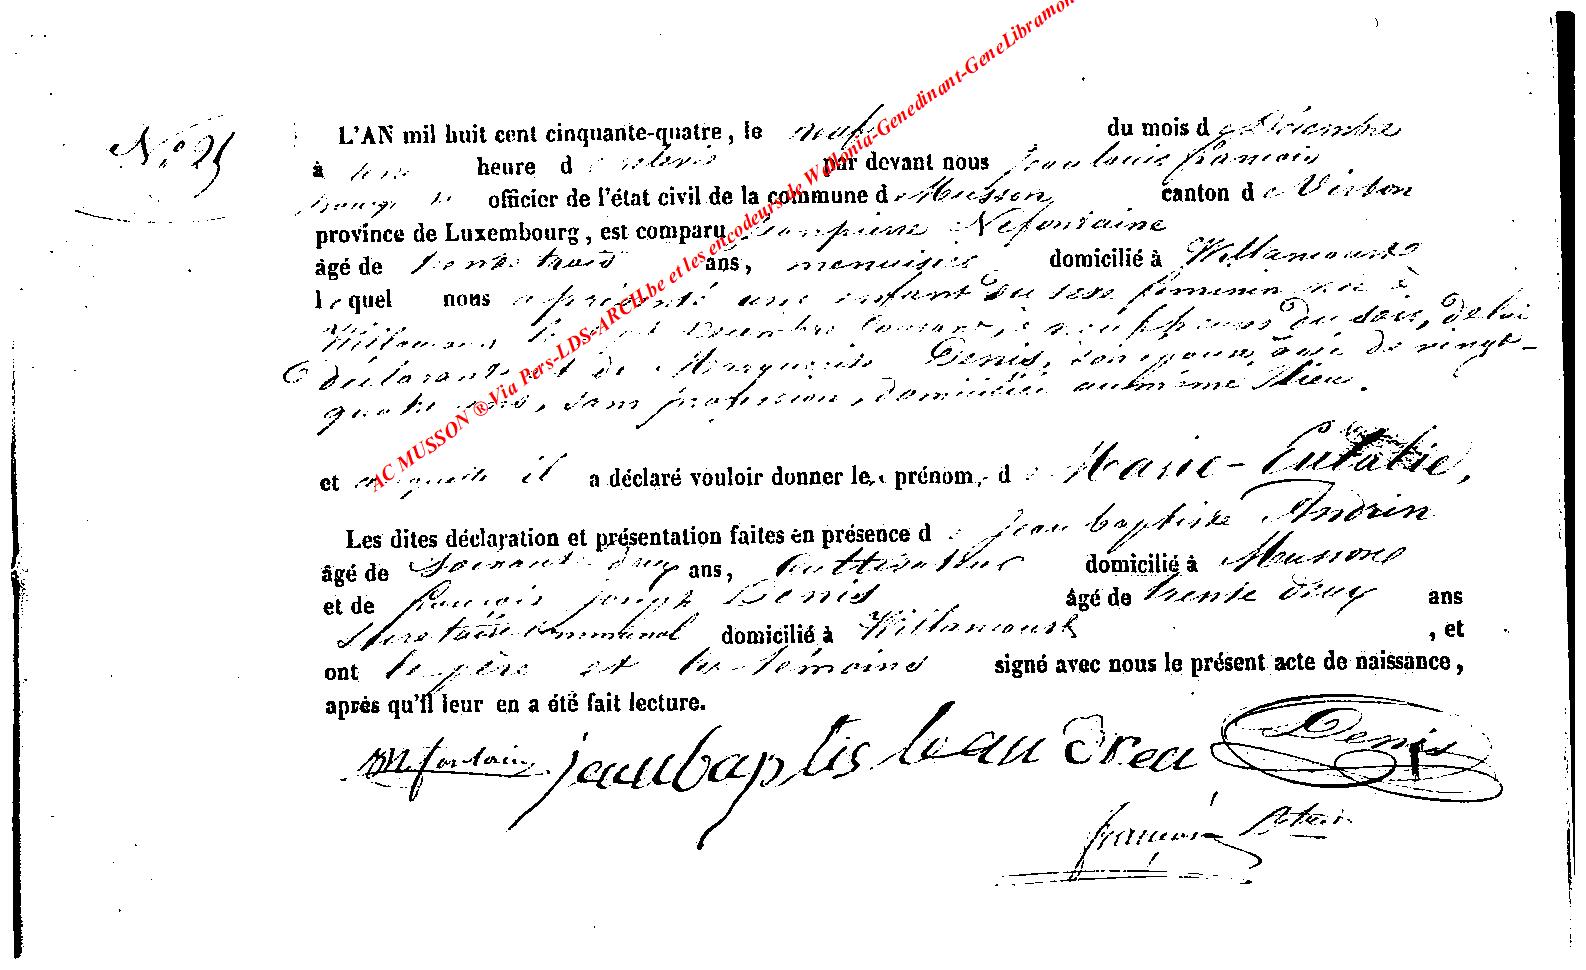 AC MUSSON ® Via Pers-LDS-ARCH.be et les encodeurs de Wallonia-Genedinant-GeneLibramon
N.° 25
L'AN mil huit cent cinquante-quatre, le neuf du mois de Décembre
à heure d par devant nous Jean louis françois
officier de l'état civil de la commune de Musson canton de Virton
province de Luxembourg, est comparu Jean pierre Nefontaine
âgé de trente trois ans, menuisier domicilié à Willancourt
lequel nous a présenté une enfant du sexe feminin née à
Willancourt le Decembre heures du soir, de lui
déclarant et de Marguerite Denis, son épouse, agée de vingt-
quatre ans, sans profession, domiciliée au même lieu.
et à laquelle il a déclaré vouloir donner les prénoms de Marie-Eulalie,
Les dites déclaration et présentation faites en présence de Jean baptiste Andrin
âgé de Soixante deux ans, Cultivateur domicilié à Musson
et de françois joseph Denis âgé de trente deux ans
Secretaire communal domicilié à Willancourt, et
ont le père et les témoins signé avec nous le présent acte de naissance,
après qu'il leur en a été fait lecture.
jean baptis Denis
françois